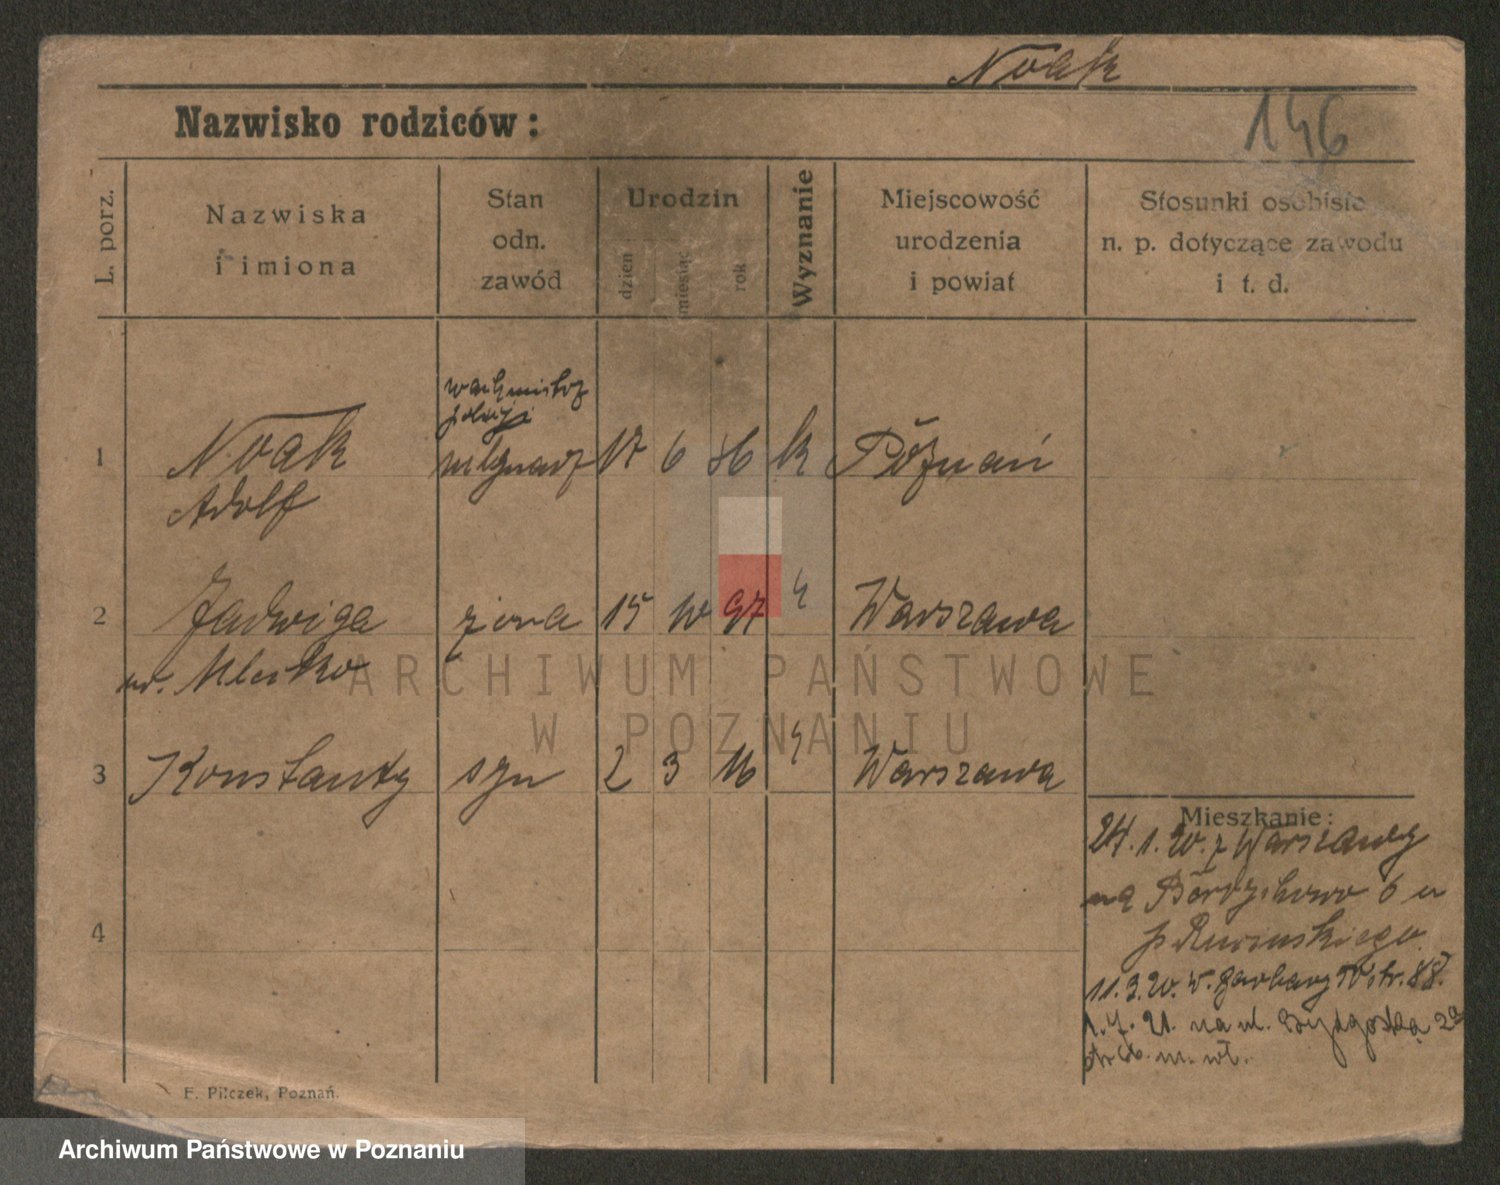 Noak
146
Nazwisko rodziców:
L. porz.
Nazwiska
i imiona
Stan
odn.
zawód
Urodzin
dzień
miesiąc
rok
Wyznanie
Miejscowość
urodzenia
i powiat
Stosunki osobiste
n. p. dotyczące zawodu
i t. d.
wachmistrz
policji
1 Noak młynarz 17 6 86 k Poznań
Adolf
2 Jadwiga żona 15 10 97 Warszawa
ur.
3 Konstanty syn 2 3 16 Warszawa
Mieszkanie:
24.1.20. z Warszawy
na 6 u
p.
11.3.20. w. Garbary
1.7.21. na ul. Bydgoską
m. wł.
4
F. Pilczek, Poznań.
ARCHIWUM PAŃSTWOWE
W POZNANIU
Archiwum Państwowe w Poznaniu